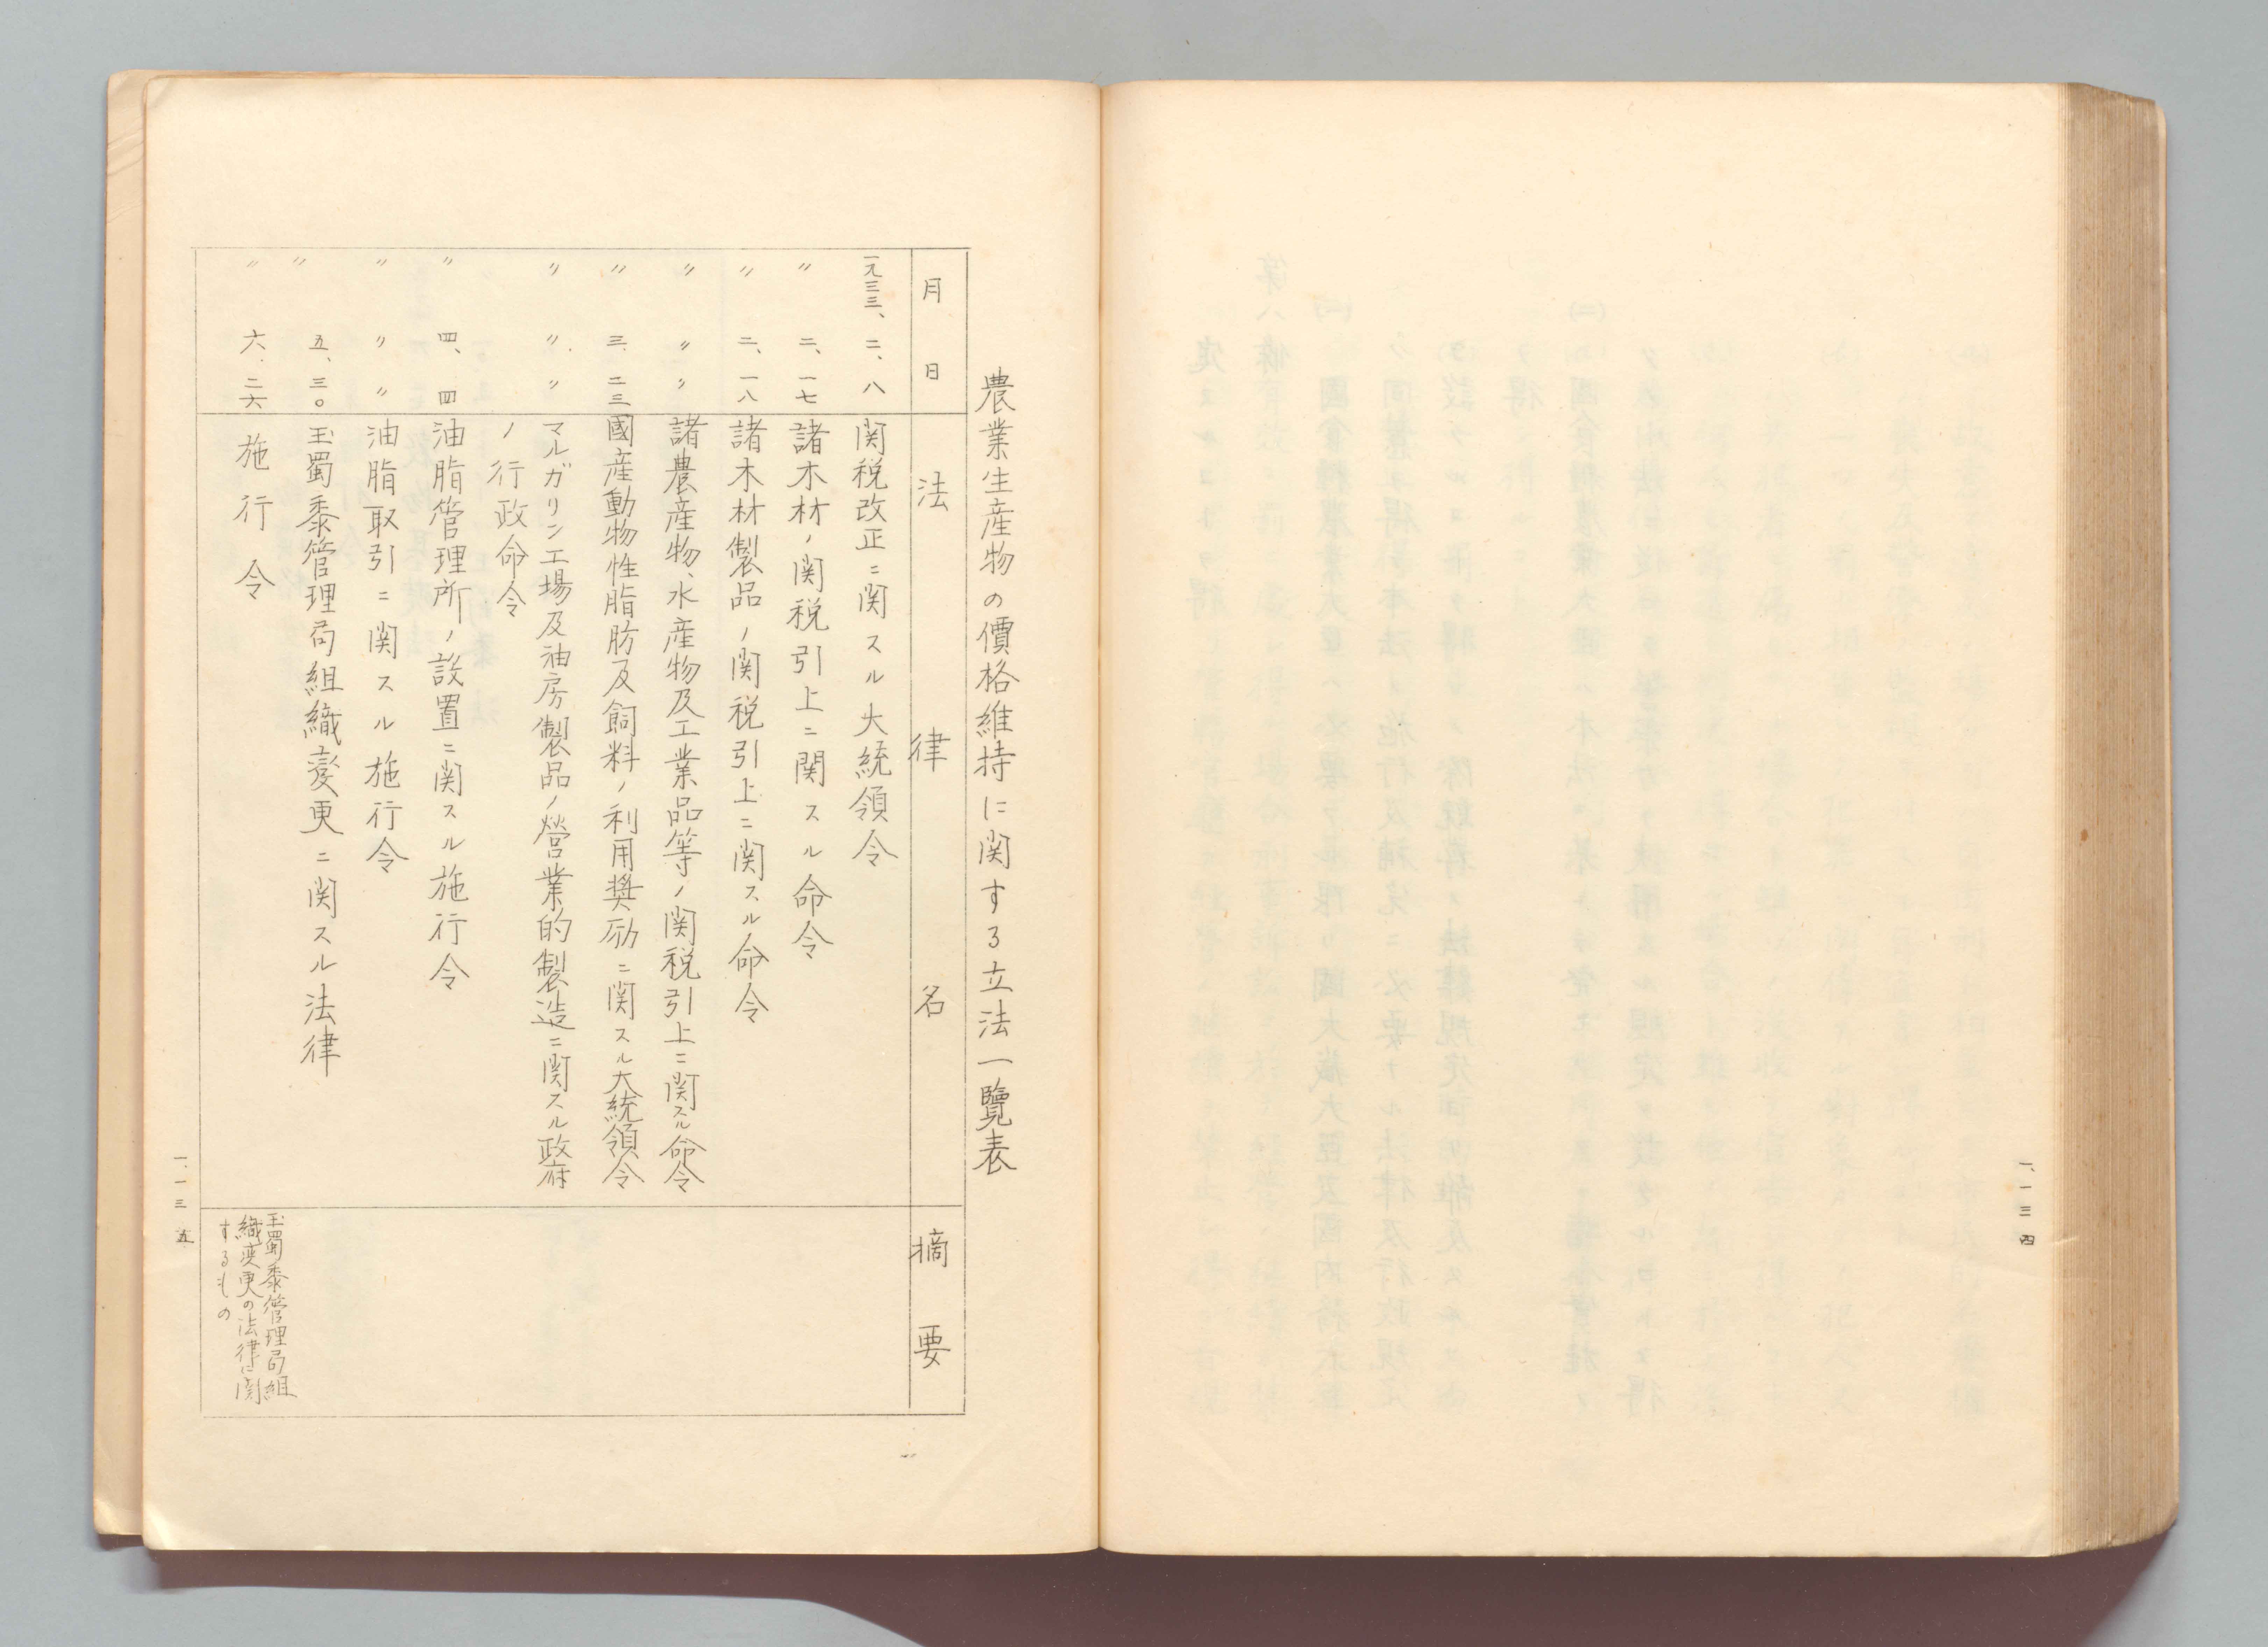 一、一三四
農業生産物の價格維持に関する立法一覽表
月日 法律名 摘要
一九三三、二、八 関税改正ニ関スル大統領令
〃 二、一七 諸木材ノ関税引上ニ関スル命令
〃 二、一八 諸木材製品ノ関税引上ニ関スル命令
〃 〃 〃 諸農産物、水産物及工業品等ノ関税引上ニ関スル命令
〃 三、二三 國産動物性脂肪及飼料ノ利用奬励ニ関スル大統領令
〃 〃 〃 マルガリン工場及油房製品ノ營業的製造ニ関スル政府
ノ行政命令
〃 四、四 油脂管理所ノ設置ニ関スル施行令
〃 〃 〃 油脂取引ニ関スル施行令
〃 五、三〇 玉蜀黍管理局組織変更ニ関スル法律
〃 六、二六 施行令
玉蜀黍管理局組
織変更の法律に関
するもの
一、一三五